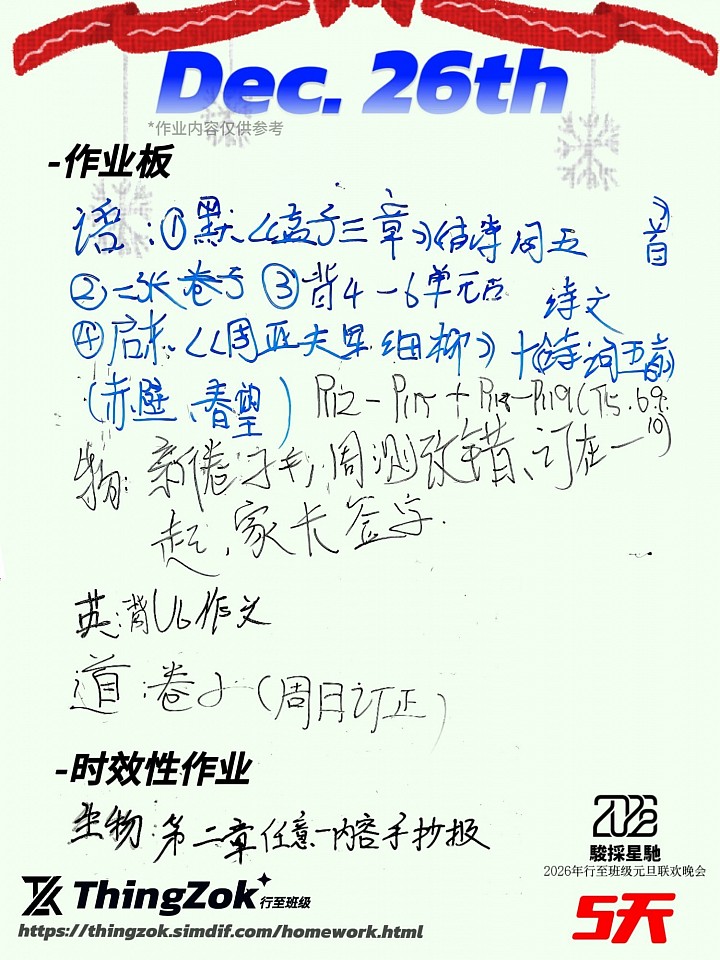 Dec. 26th
*作业内容仅供参考
-作业板
语:①默《孟子三章》 周五
②二张卷子 ③背4-6单元 诗文
④ 《周亚夫军细柳》+诗词五首
(赤壁、春望) P112-P115+P118-P119(T5.6.9.10)
物: 周测改错、订在一
起、家长签字.
英:背U6作文
道:卷子(周日订正)
-时效性作业
生物:第二章任意一内容手抄报
2026
駿採星馳
2026年行至班级元旦联欢晚会
ThingZok 行至班级
5天
https://thingzok.simdif.com/homework.html